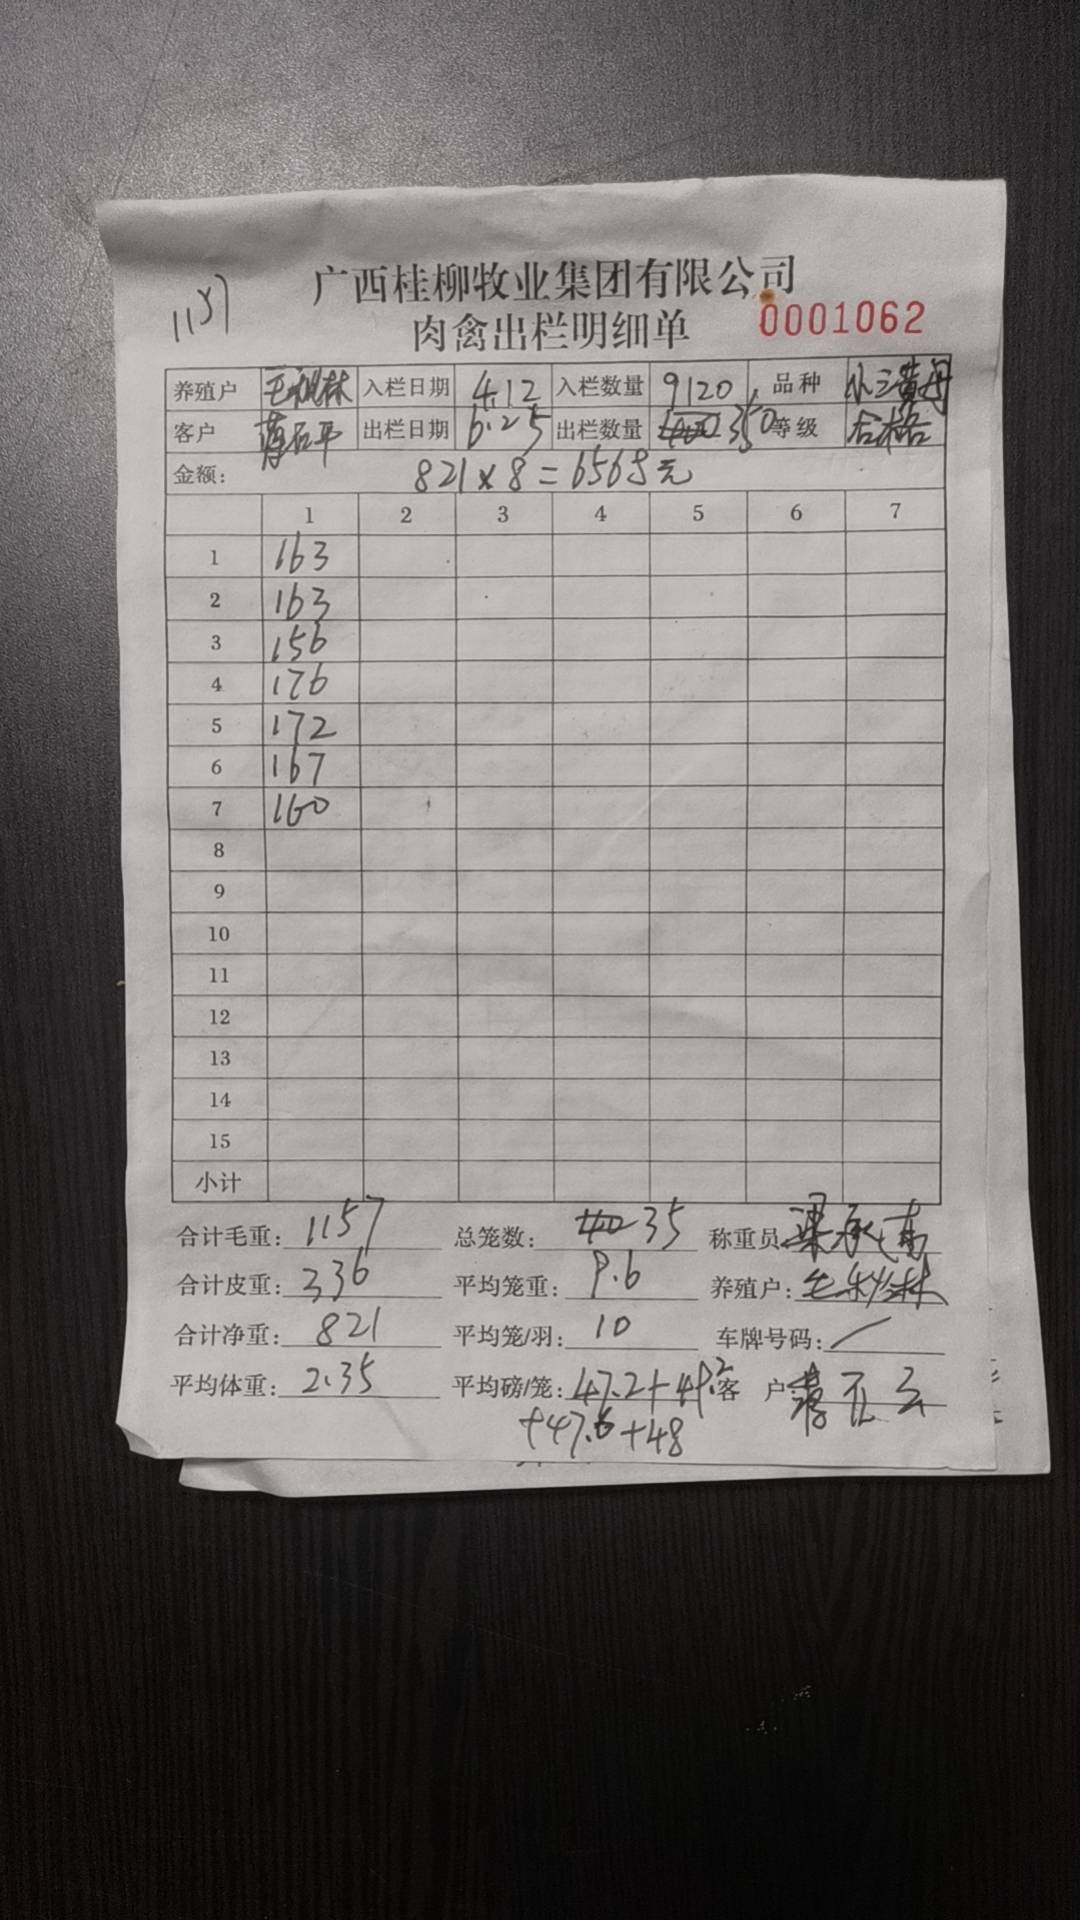 广西桂柳牧业集团有限公司
1157
肉禽出栏明细单 0001062
养殖户 入栏日期 4.12 入栏数量 9120 品种
客户 出栏日期 6.25 出栏数量 350 等级 合格
金额: 821×8=6568元
1 2 3 4 5 6 7
1 163
2 163
3 156
4 176
5 172
6 167
7 160
8
9
10
11
12
13
14
15
小计
合计毛重: 1157 总笼数: 40 35 称重员
合计皮重: 336 平均笼重: 9.6 养殖户:
合计净重: 821 平均笼/羽: 10 车牌号码: /
平均体重: 2.35 平均磅/笼: 47.2+49.2 客 户
+47.6+48